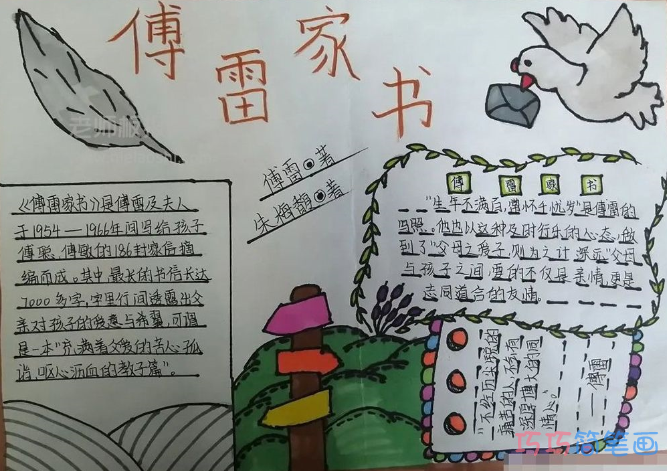 傅雷家书
傅雷●著
朱梅馥●著
《傅雷家书》是傅雷及夫人
于1954—1966年间写给孩子
傅聪、傅敏的186封家信摘
编而成。其中最长的书信长达
7000多字。字里行间透露出父
亲对孩子的疼爱与希冀,可谓
是一本“充满着父爱的苦心孤
诣、呕心沥血的教子篇”。
傅雷家书
“生年不满百,常怀千忧岁”是傅雷的
写照。他也以这种及时行乐的心态,做
到了“父母之爱子,则为之计深远”父母
与孩子之间,要的不仅是亲情,更是
志同道合的友情。
“不经历尖锐的
痛苦的人,不会有
深厚博大的同
情心。”
——傅雷
巧巧简笔画